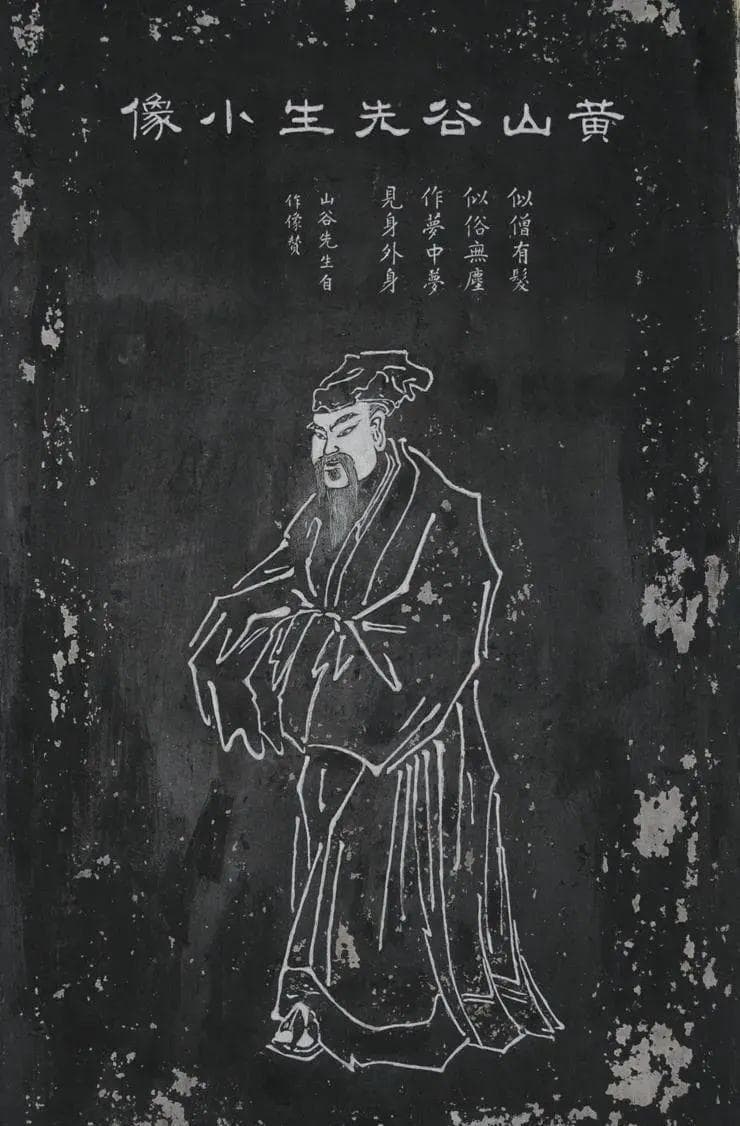 黃山谷先生小像
似僧有髮
似俗無塵
作夢中夢
見身外身
山谷先生自
作像贊